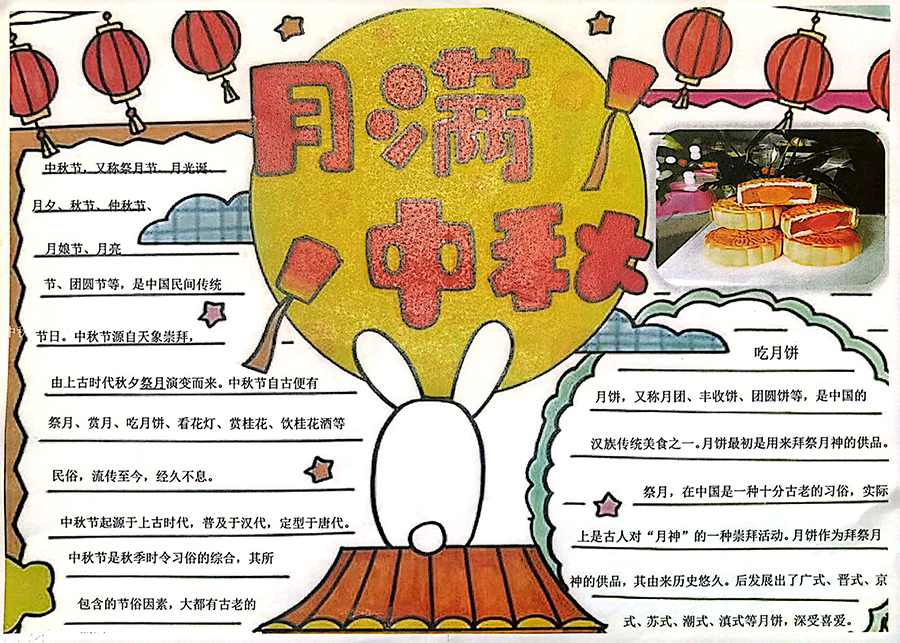 月满
中秋
中秋节，又称祭月节、月光诞、
月夕、秋节、仲秋节、
月娘节、月亮
节、团圆节等，是中国民间传统
节日。中秋节源自天象崇拜，
由上古时代秋夕祭月演变而来。中秋节自古便有
祭月、赏月、吃月饼、看花灯、赏桂花、饮桂花酒等
民俗，流传至今，经久不息。
中秋节起源于上古时代，普及于汉代，定型于唐代。
中秋节是秋季时令习俗的综合，其所
包含的节俗因素，大都有古老的
吃月饼
月饼，又称月团、丰收饼、团圆饼等，是中国的
汉族传统美食之一。月饼最初是用来拜祭月神的供品。
祭月，在中国是一种十分古老的习俗，实际
上是古人对“月神”的一种崇拜活动。月饼作为拜祭月
神的供品，其由来历史悠久。后发展出了广式、晋式、京
式、苏式、潮式、滇式等月饼，深受喜爱。